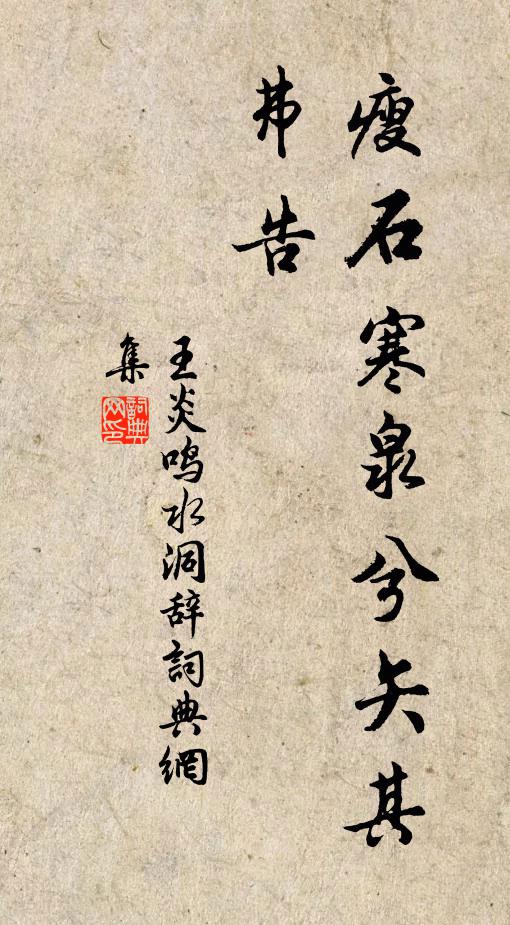 瘦石寒泉兮矢其
弗告
王炎鸣水洞辞詞典網
集
詞典
网印